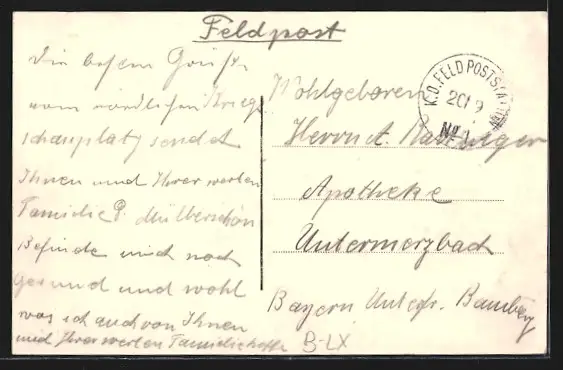 Feldpost
Die besten Grüße
vom nördlichen Kriegs
schauplatz sendet
Ihnen und Ihrer werten
Familie P. Müllerschön
Befinde mich noch
gesund und wohl
was ich auch von Ihnen
und Ihrer werten Familie hoffe
K.D. FELDPOSTSTATION
Nº
Wohlgeboren
Herrn A.
Apotheke
Untermerzbach
Bayern Unterfr. Bamberg
B-LX